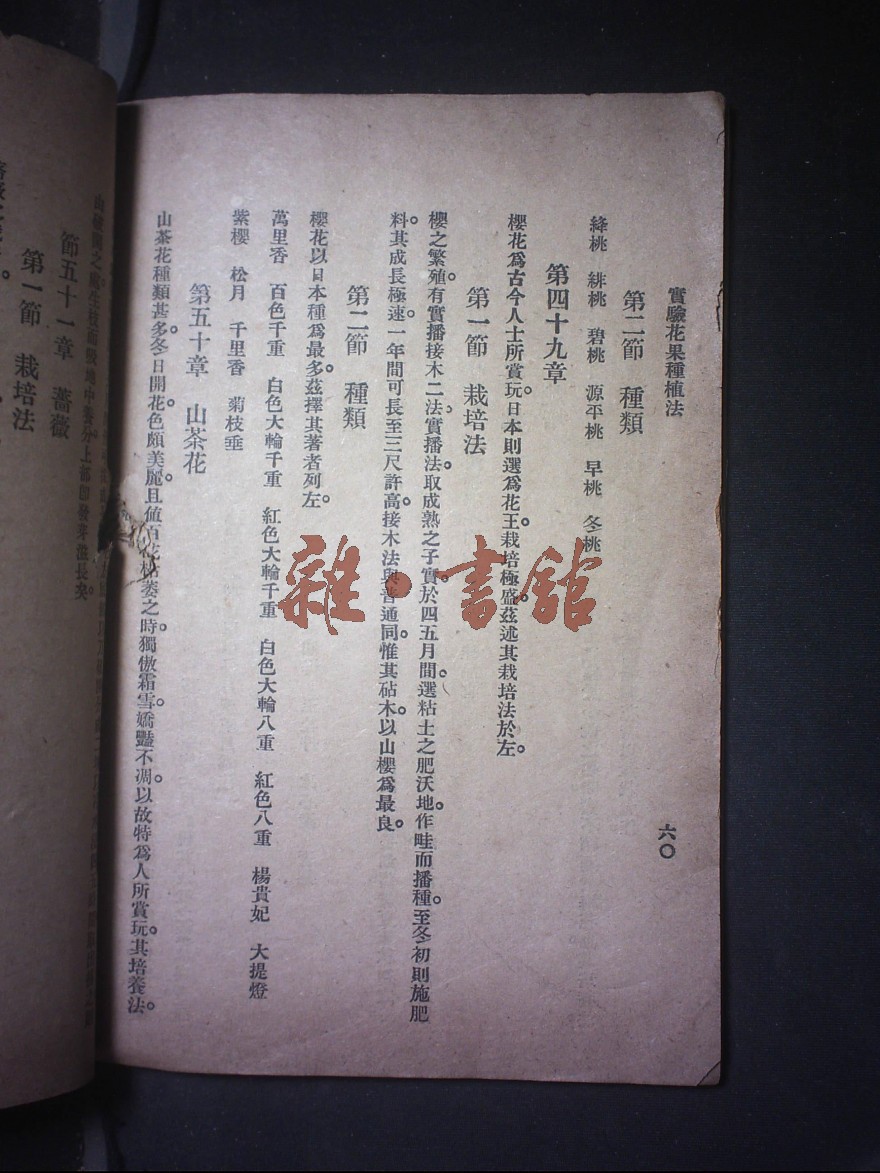 實驗花果種植法
六〇
第二節　種類
絳桃　緋桃　碧桃　源平桃　早桃　冬桃
第四十九章
櫻花爲古今人士所賞玩。日本則選爲花王。栽培極盛。茲述其栽培法於左。
第一節　栽培法
櫻之繁殖。有實播接木二法。實播法。取成熟之子實。於四五月間。選粘土之肥沃地。作畦而播種。至冬初則施肥
料。其成長極速。一年間可長至三尺許高。接木法與普通同。惟其砧木。以山櫻爲最良。
第二節　種類
櫻花以日本種爲最多。茲擇其著者列左。
萬里香　百色千重　白色大輪千重　紅色大輪千重　白色大輪八重　紅色八重　楊貴妃　大提燈
紫櫻　松月　千里香　菊枝垂
第五十章　山茶花
山茶花種類甚多。冬日開花。色頗美麗。且值百花枯萎之時。獨傲霜雪。嬌豔不凋。以故特爲人所賞玩。其培養法。
節五十一章　薔薇
第一節　栽培法
雜·書館